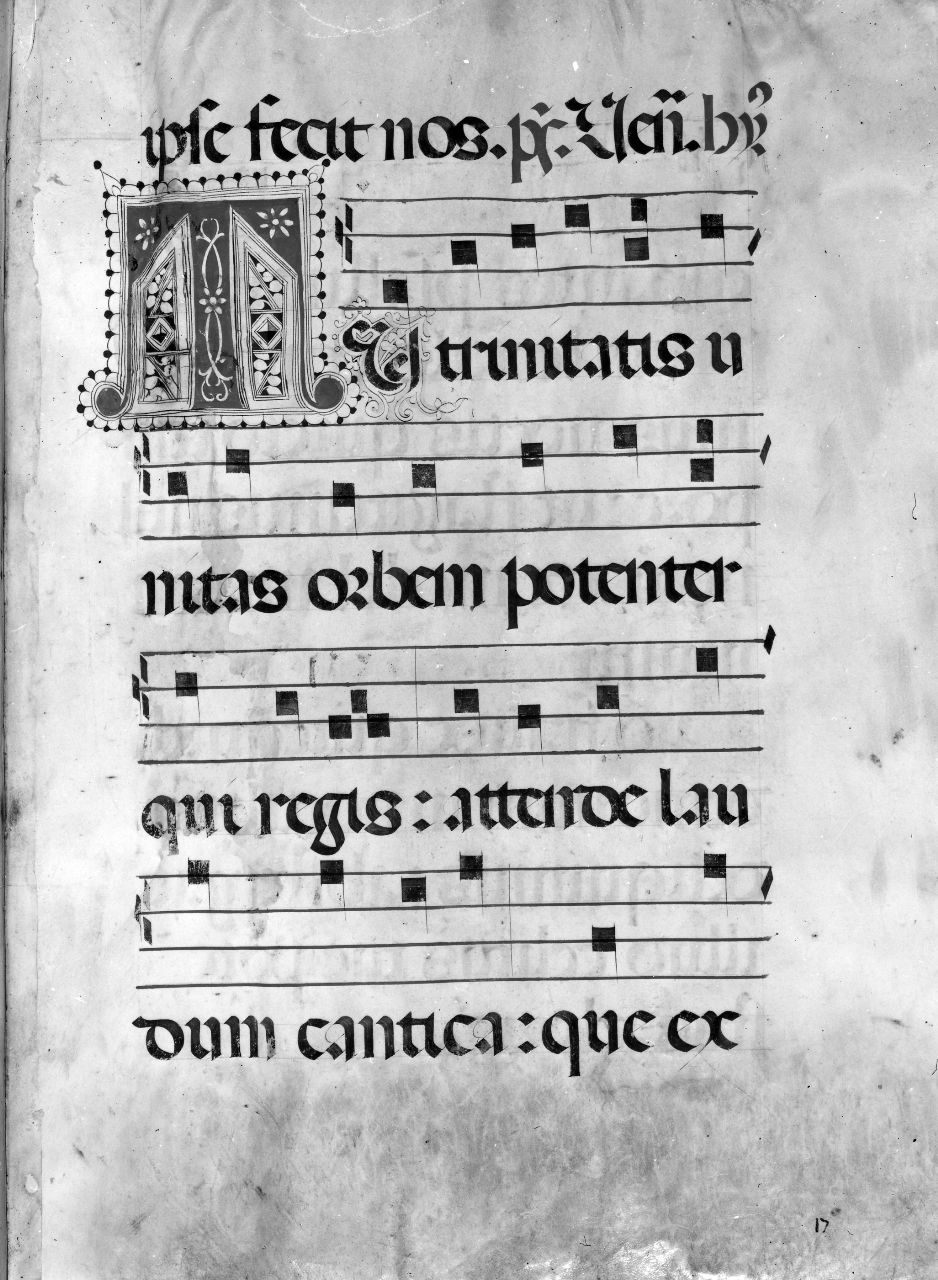 ipse fecit nos. ps̃. Uenĩ. hỹ.
TU trinitatis u
nitas orbem potenter
qui regis : attende lau
dum cantica : que ex
17